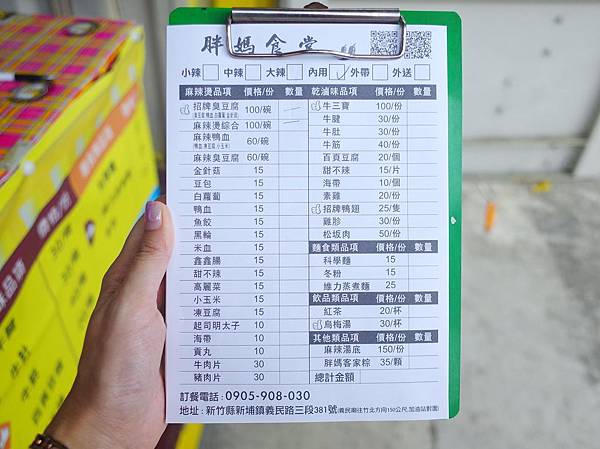 胖媽食堂
小辣 中辣 大辣 內用 外帶 外送
麻辣燙品項 價格/份 數量
招牌臭豆腐 100/碗
麻辣燙綜合 100/碗
麻辣鴨血 60/碗
麻辣臭豆腐 60/碗
金針菇 15
豆包 15
白蘿蔔 15
鴨血 15
魚餃 15
黑輪 15
米血 15
鑫鑫腸 15
甜不辣 15
高麗菜 15
小玉米 15
凍豆腐 15
起司明太子 10
海帶 10
貢丸 10
牛肉片 30
豬肉片 30
乾滷味品項 價格/份 數量
牛三寶 100/份
牛腱 30/份
牛肚 30/份
牛筋 40/份
百頁豆腐 20/個
甜不辣 15/片
海帶 10/個
素雞 20/份
招牌鴨翅 25/隻
雞胗 30/份
松坂肉 50/份
麵食類品項 價格/份 數量
科學麵 15
冬粉 15
維力蒸煮麵 25
飲品類品項 價格/份 數量
紅茶 20/杯
烏梅湯 30/杯
其他類品項 價格/份 數量
麻辣湯底 150/份
胖媽客家粽 35/顆
總計金額
訂餐電話：0905-908-030
地址：新竹縣新埔鎮義民路三段381號(義民廟往竹北方向150公尺,加油站對面)
價格/份